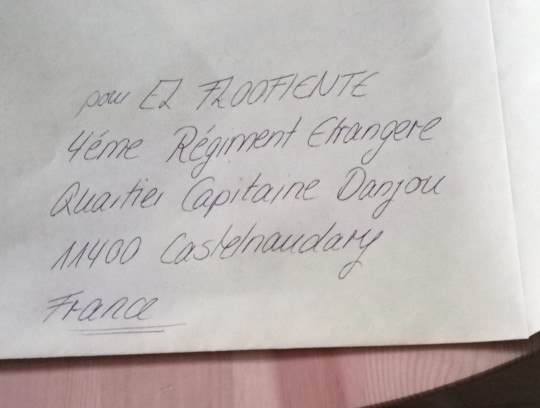 pour EZ FLOOFIENTE
4éme Régiment Etrangere
Quartier Capitaine Danjou
11400 Castelnaudary
France